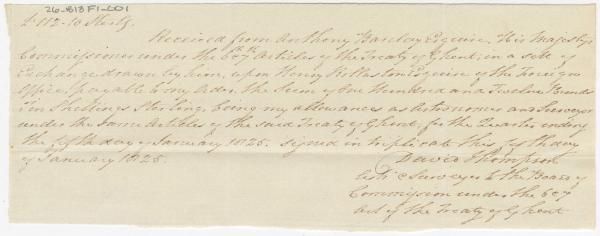 26-813 F1-C01
£112-10 Sterlg
Received from Anthony Barclay Esquire, His Majestys
Commissioner under the 6&7th Articles of the Treaty of Ghent, in a sett of
Exchange drawn by him, upon Henry Esquire of the Foreign
Office, payable to my Order, the Sum of One Hundred and Twelve Pounds
Ten Shillings Sterling, being my allowances as Astronomer and Surveyor
under the same Articles of the said Treaty of Ghent, for the Quarter ending
the fifth day of January 1825. Signed in triplicate this fifth day
of January 1825.
David Thompson
Astr & Surveyor to the Board of
Commission under the 6&7
Art of the Treaty of Ghent